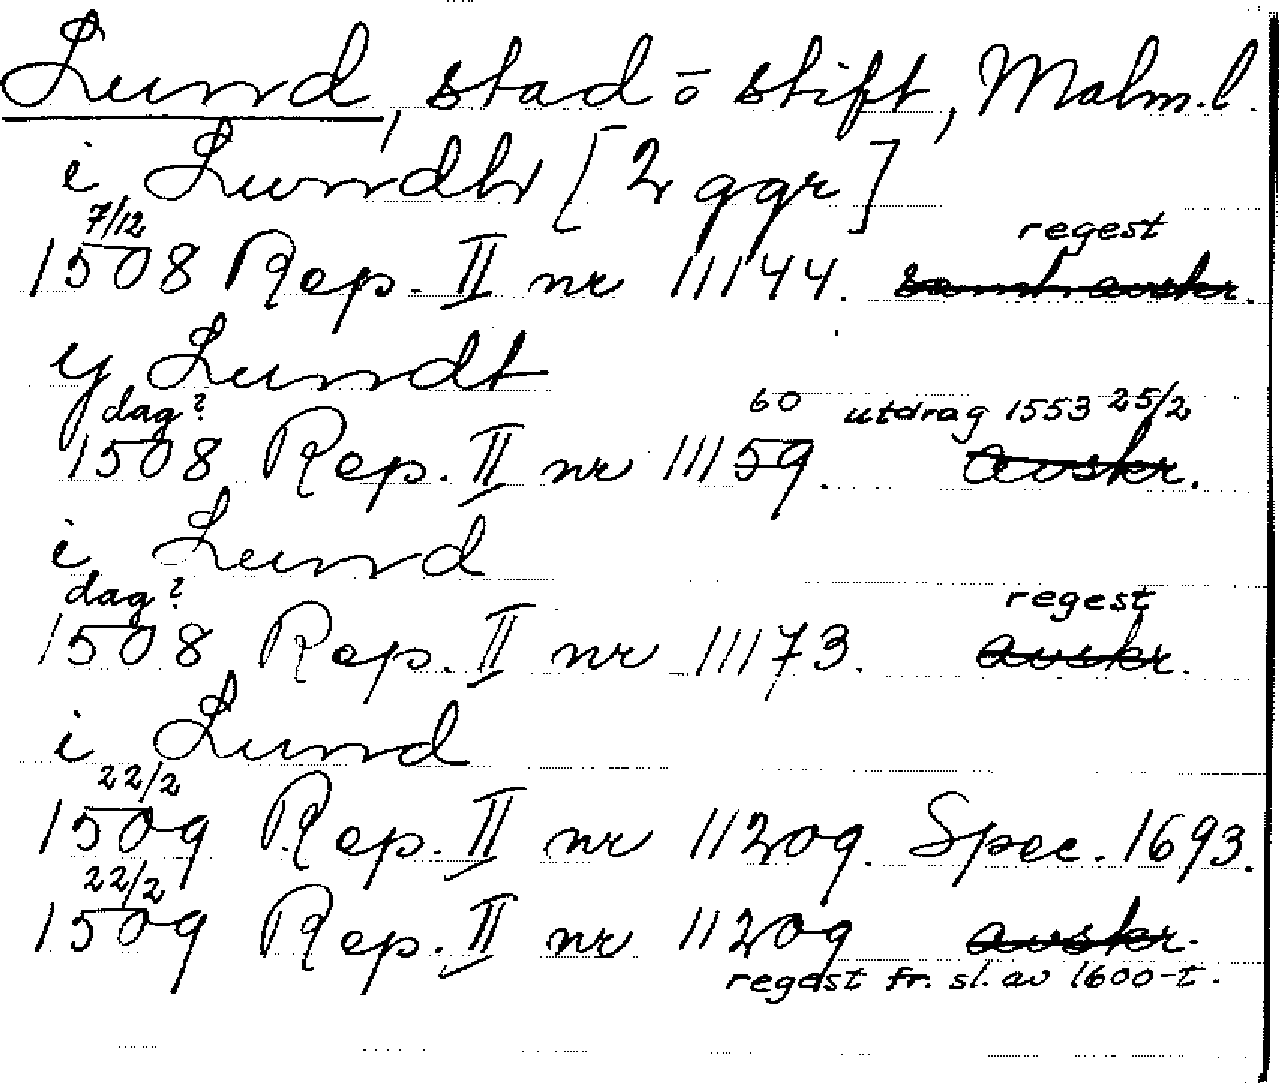 Lund, stad o stift, Malm.l.
i Lundh [2 ggr]
7/12 regest
1508 Rep. II nr 11144. samt avskr.
y Lundt
dag? 60 utdrag 1553 25/2
1508 Rep. II nr 11159. avskr.
i Lund
dag? regest
1508 Rep. II nr 11173. avskr.
i Lund
22/2
1509 Rep. II nr 11209. Spec. 1693.
22/2
1509 Rep. II nr 11209 avskr.
regest fr. sl. av 1600-t.